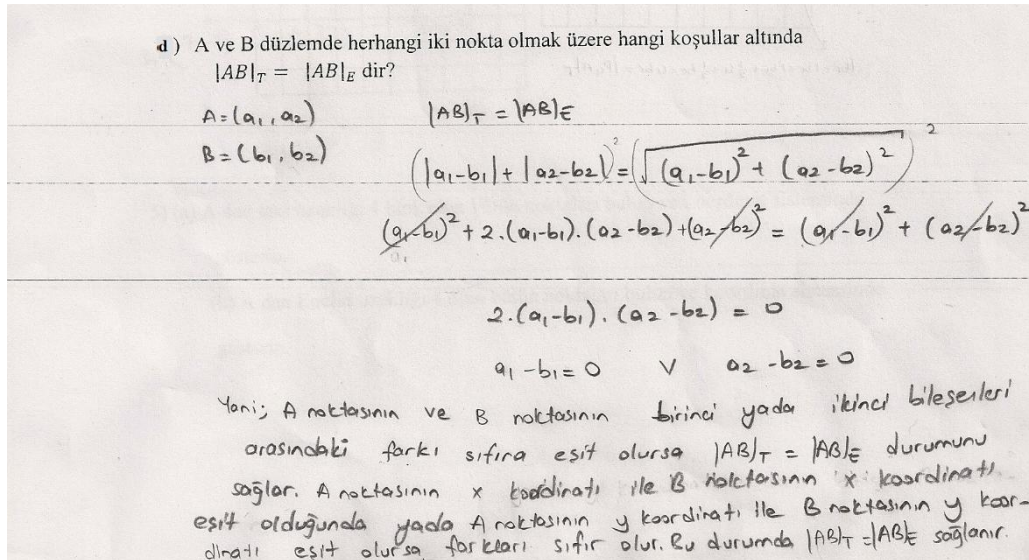 d) A ve B düzlemde herhangi iki nokta olmak üzere hangi koşullar altında
|AB|_T = |AB|_E dir?
A=(a₁,a₂) |AB|_T = |AB|_E
B=(b₁,b₂)
(|a₁-b₁|+|a₂-b₂|)² = (√((a₁-b₁)²+(a₂-b₂)²))²
(a₁-b₁)²+2.(a₁-b₁).(a₂-b₂)+(a₂-b₂)² = (a₁-b₁)²+(a₂-b₂)²
2.(a₁-b₁).(a₂-b₂) = 0
a₁-b₁=0 V a₂-b₂=0
Yani; A noktasının ve B noktasının birinci yada ikinci bileşenleri
arasındaki farkı sıfıra eşit olursa |AB|_T = |AB|_E durumunu
sağlar. A noktasının x koordinatı ile B noktasının x koordinatı
eşit olduğunda yada A noktasının y koordinatı ile B noktasının y koor-
dinatı eşit olursa farkları sıfır olur. Bu durumda |AB|_T = |AB|_E sağlanır.